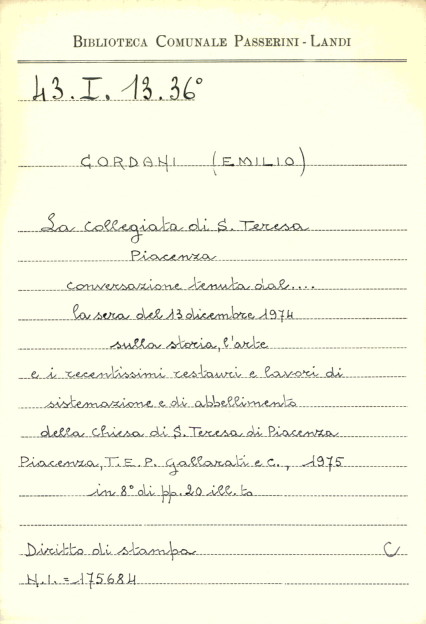 BIBLIOTECA COMUNALE PASSERINI-LANDI
43.I.13.36°
GORDANI (EMILIO)
La Collegiata di S. Teresa
Piacenza
conversazione tenuta dal....
la sera del 13 dicembre 1974
sulla storia, l'arte
e i recentissimi restauri e lavori di
sistemazione e di abbellimento
della Chiesa di S. Teresa di Piacenza
Piacenza, T.E.P. Gallarati e C., 1975
in 8° di pp. 20 ill.to
Diritto di stampa C
N.I. = 175684